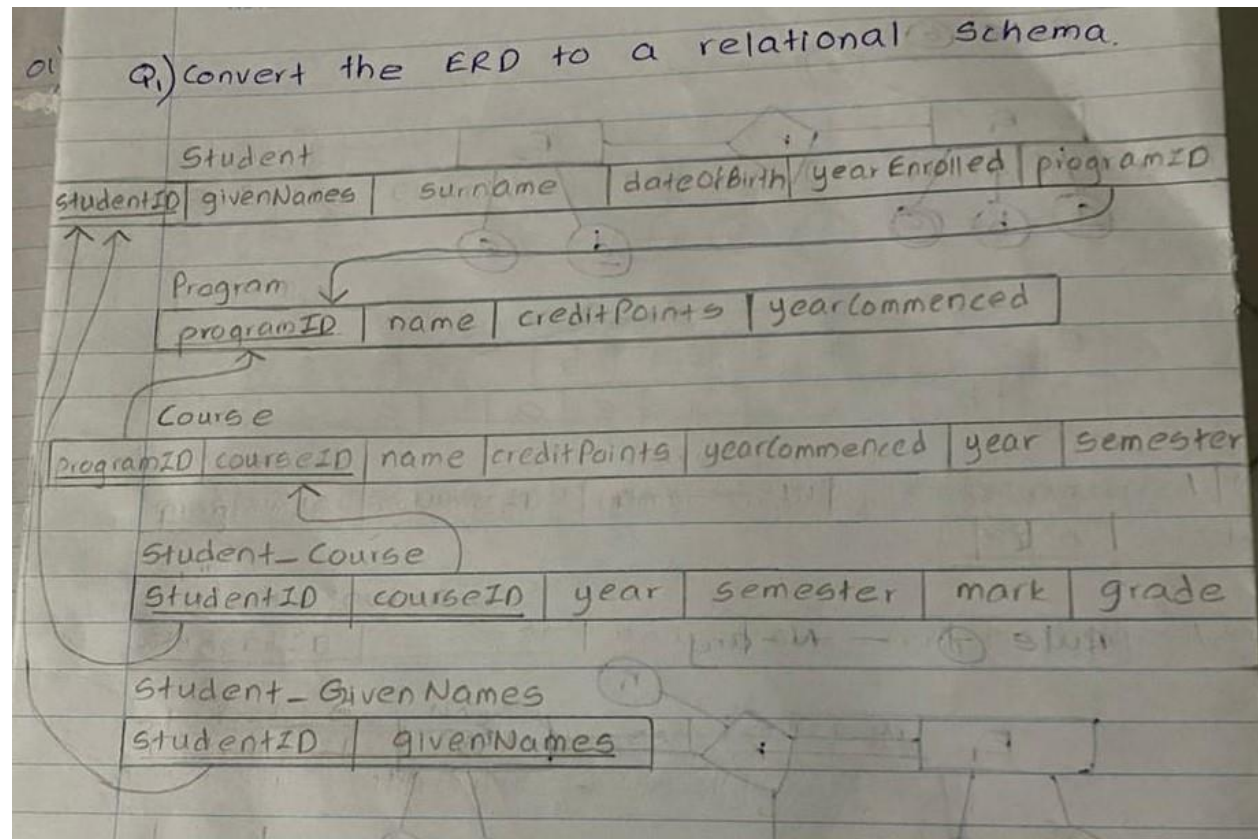 01
Q1) Convert the ERD to a relational schema.
Student
studentID givenNames surname dateOfBirth yearEnrolled programID
Program
programID name creditPoints yearCommenced
Course
programID courseID name creditPoints yearCommenced year semester
Student_Course
StudentID courseID year semester mark grade
Student_GivenNames
StudentID givenNames